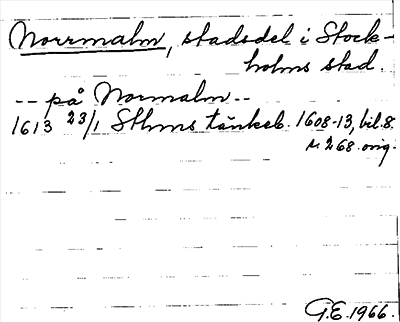 Norrmalm, stadsdel i Stock-
holms stad.
-- på Normalm --
1613 23/1 Sthms tänkeb. 1608-13, bil. 8.
s 268. orig.
G.E. 1966.